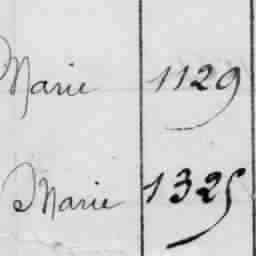 Marie 1129
Marie 1325